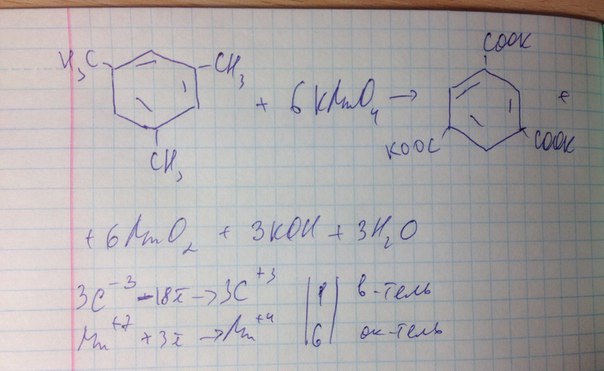 H₃C CH₃ + 6 KMnO₄ → COOK +
CH₃ KOOC COOK
+ 6MnO₂ + 3KOH + 3H₂O
3C⁻³ - 18ē → 3C⁺³ | 1 | в-тель
Mn⁺⁷ + 3ē → Mn⁺⁴ | 6 | ок-тель